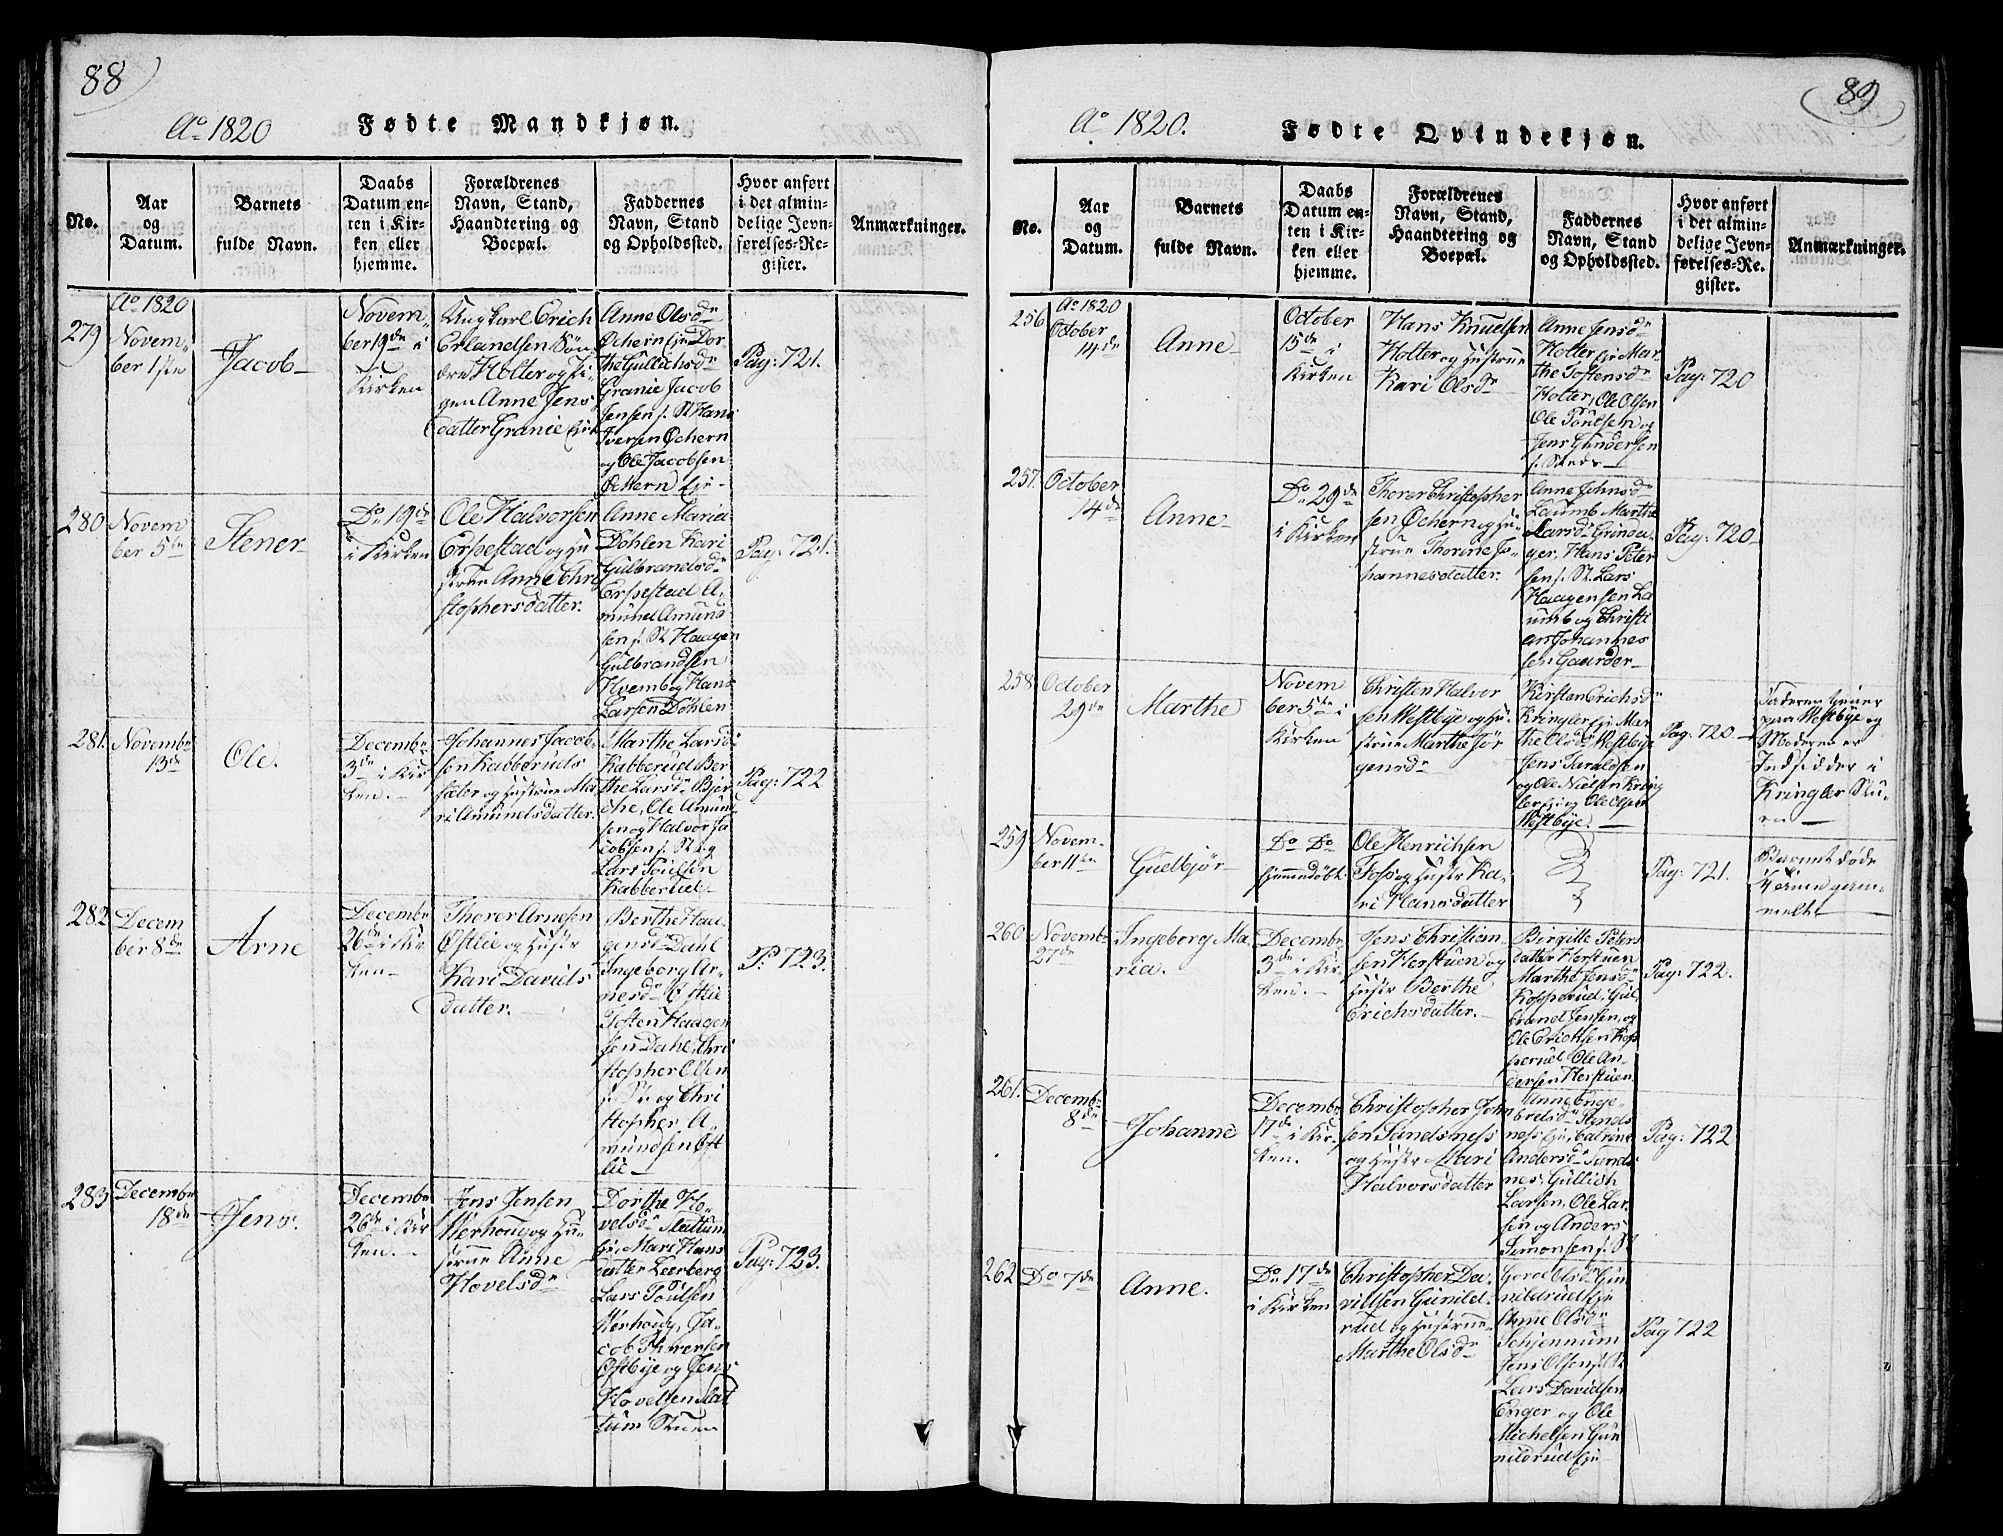 88
Ao 1820
Fødte Mandkjøn.
No.
Aar
og
Datum.
Barnets
fulde Navn.
Daabs
Datum en-
ten i Kir-
ken eller
hjemme.
Forældrenes
Navn, Stand,
Haandtering og
Boepæl.
Faddernes
Navn, Stand
og Opholdssted.
Hvor anført
i det almin-
delige Jevn-
førelses-Re-
gister.
Anmærkninger.
Ao 1820
279
Novem-
ber 1ste
Jacob
Novem-
ber 19de i
Kirken
Ungkarl Erich
Erlandsen Søn-
dre Holter og Pi-
gen Anne Jens
datter Granie
Anne Olsdr
Ochern Eje Dor
the Gullichsdr
Granie Jacob
Jensen f. St Hans
Iversen Ochern
og Ole Jacobsen
Ochern Eje-
Pag: 721.
280
Novem
ber 5te
Stener
Do 19de
i Kirken
Ole Halvorsen
Erpestad og Hu
strue Anne Chri
stophersdatter.
Anne Maria
Døhlen Kari
Gulbrandsdr
Erpestad A-
mund Amund
sen f. St Haagen
Gulbrandsen
Hvemb og Hans
Larsen Døhlen
Pag: 721.
281.
Novembr
13de
Ole.
Decembr
3de i Kir
ken.
Johannes Jacob-
sen Kabberuds
Eier og Hustrue Ma-
ri Amundsdatter.
Marthe Larsdr
Kabberud Ber
the Larsdr Bjer
che, Ole Amund
sen og Halvor Ja
cobsen f. St og
Lars Poulsen
Kabberud
Pag: 722
282
Decem
ber 8de
Arne
Decembr
26de i Kir
ken
Thorer Arnesen
Østlie og Hustr
Kari Davids
datter.
Berthe Haa-
gensdr Dahl
Ingeborg Ar-
nesdr Østlie
Tosten Haagen
sen Dahl, Chri
stopher Olsen
f. St og Chri
stopher A-
mundsen Øst
lie
P: 723.
283
Decembr
18de
Jens.
Decembr
26de i Kir
ken.
Jens Jensen
Nerhoug og Hu-
strue Anne
Hovelsdr
Dorthe Ho-
velsdr Slattum
Eje, Mari Hans
datter Leerberg
Lars Poulsen
Nerhoug, Ja-
cob Thoresen
Østbye og Jens
Hovelsen Slat
tum Stuen
Pag: 723.
89
Ao 1820.
Fødte Qvindekjøn.
No.
Aar
og
Datum.
Barnets
fulde Navn.
Daabs
Datum en-
ten i Kir-
ken eller
hjemme.
Forældrenes
Navn, Stand,
Haandtering og
Boepæl.
Faddernes
Navn, Stand
og Opholdssted.
Hvor anført
i det almin-
delige Jevn-
førelses-Re-
gister.
Anmærkninger.
Ao 1820
256
October
14de
Anne
October
15de i
Kirken
Hans Knudsen
Holter og Hustrue
Kari Olsdr
Anne Jensdr
Holter Eje Mar
the Tostensdr
Holter, Ole Olsen
Ole Poulsen og
Jens Gundersen
f. Steds
Pag: 720
257.
October
14de
Anne
Do 29de
i Kirken
Thorer Christopher
sen Ochern og Hu-
strue Thorine Jo-
hannesdatter.
Anne Johnsdr
Laumb Marthe
Larsdr Grinda-
ger, Hans Peter
sen f. St. Lars
Haagensen La
umb og Christi
an Johannes
sen Gaarder
Pag: 720
258
October
29de
Marthe
Novem
ber 5te i
Kirken
Christen Halvor
sen Westbye og Hu-
strue Marthe Jør
gensdr
Kirstan Erichsdr
Kringler Eje Mar
the Olsdr Westbye
Jens Taraldsen
og Ole Nielsen Kring
ler Eje og Ole Olsen
Westbye.
Pag: 720.
Faderen tiener
paa Westbye og
Moderen er
Indsidder i
Kringler Stu-
en
259
Novem-
ber 11te
Guelbjør
Do Do
hjemmedøbt
Ole Henrichsen
Foss og Hustr Ka-
ri Hansdatter
Pag: 721.
Barnet døde
gam-
melt
260
Novembr
27de
Ingeborg Ma-
ria.
Decembr
3de i Kir-
ken.
Jens Christian-
sen Horstuen og
Hustr Berthe
Erichsdatter.
Birgitte Peters
datter Horstuen
Marthe Jensdr
Kopperud, Gul-
brand Jensen, og
Ole Erichsen Kop
perud Ole An-
dersen Horstuen
Pag: 722.
261.
Decembr
8de
Johanne
Decembr
17de i Kir-
ken.
Christopher John
sen Sandsness
og Hustr Mari
Halvorsdatter
Anne Enge-
bretsdr Sands
ness Eje, Catrine
Andersdr Sands
nes, Gullich
Larsen, Ole Lar-
sen og Anders
Simonsen f. St
Pag: 722
262
Do 7de
Anne.
Do 17de
i Kirken
Christopher Da-
vidsen Gunild-
rud og Hustrue
Marthe Olsdr
Goroe Olsdr Gun
nildrud Eje
Anne Olsdr
Schjennum
Jens Olsen f. St
Lars Davidsen
Enger og Ole
Michelsen Gun
nildrud Eje
Pag 722